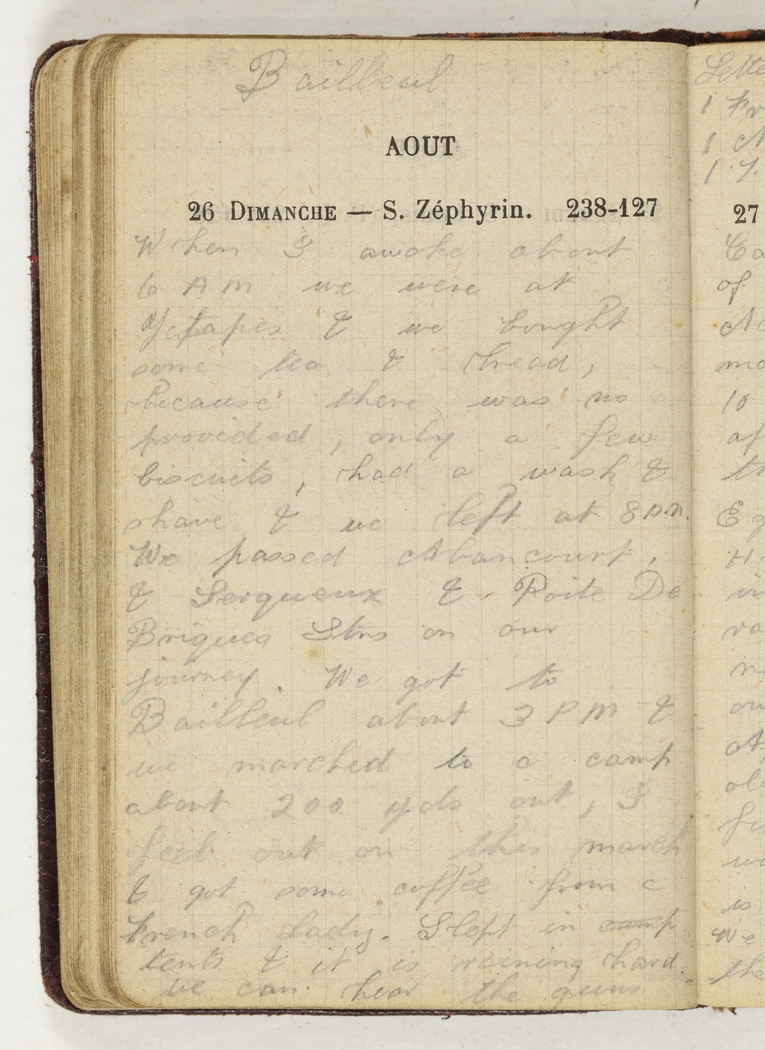 Bailleul
AOUT
26 DIMANCHE — S. Zéphyrin. 238-127
When I awoke about
6 AM we were at
& we bought
some tea & bread,
because there was no
provided, only a few
biscuits, had a wash &
shave & we left at 8
We passed Abancourt,
& Serqueux & De
Briques Stns on our
journey. We got to
Bailleul about 3 PM &
we marched to a camp
about 200 yds out, I
fell out on this march
& got some coffee from a
French Lady. Slept in camp
tents & it is raining hard.
we can hear the guns
Lette
1
1
1
27
of
10
af
is
We
the